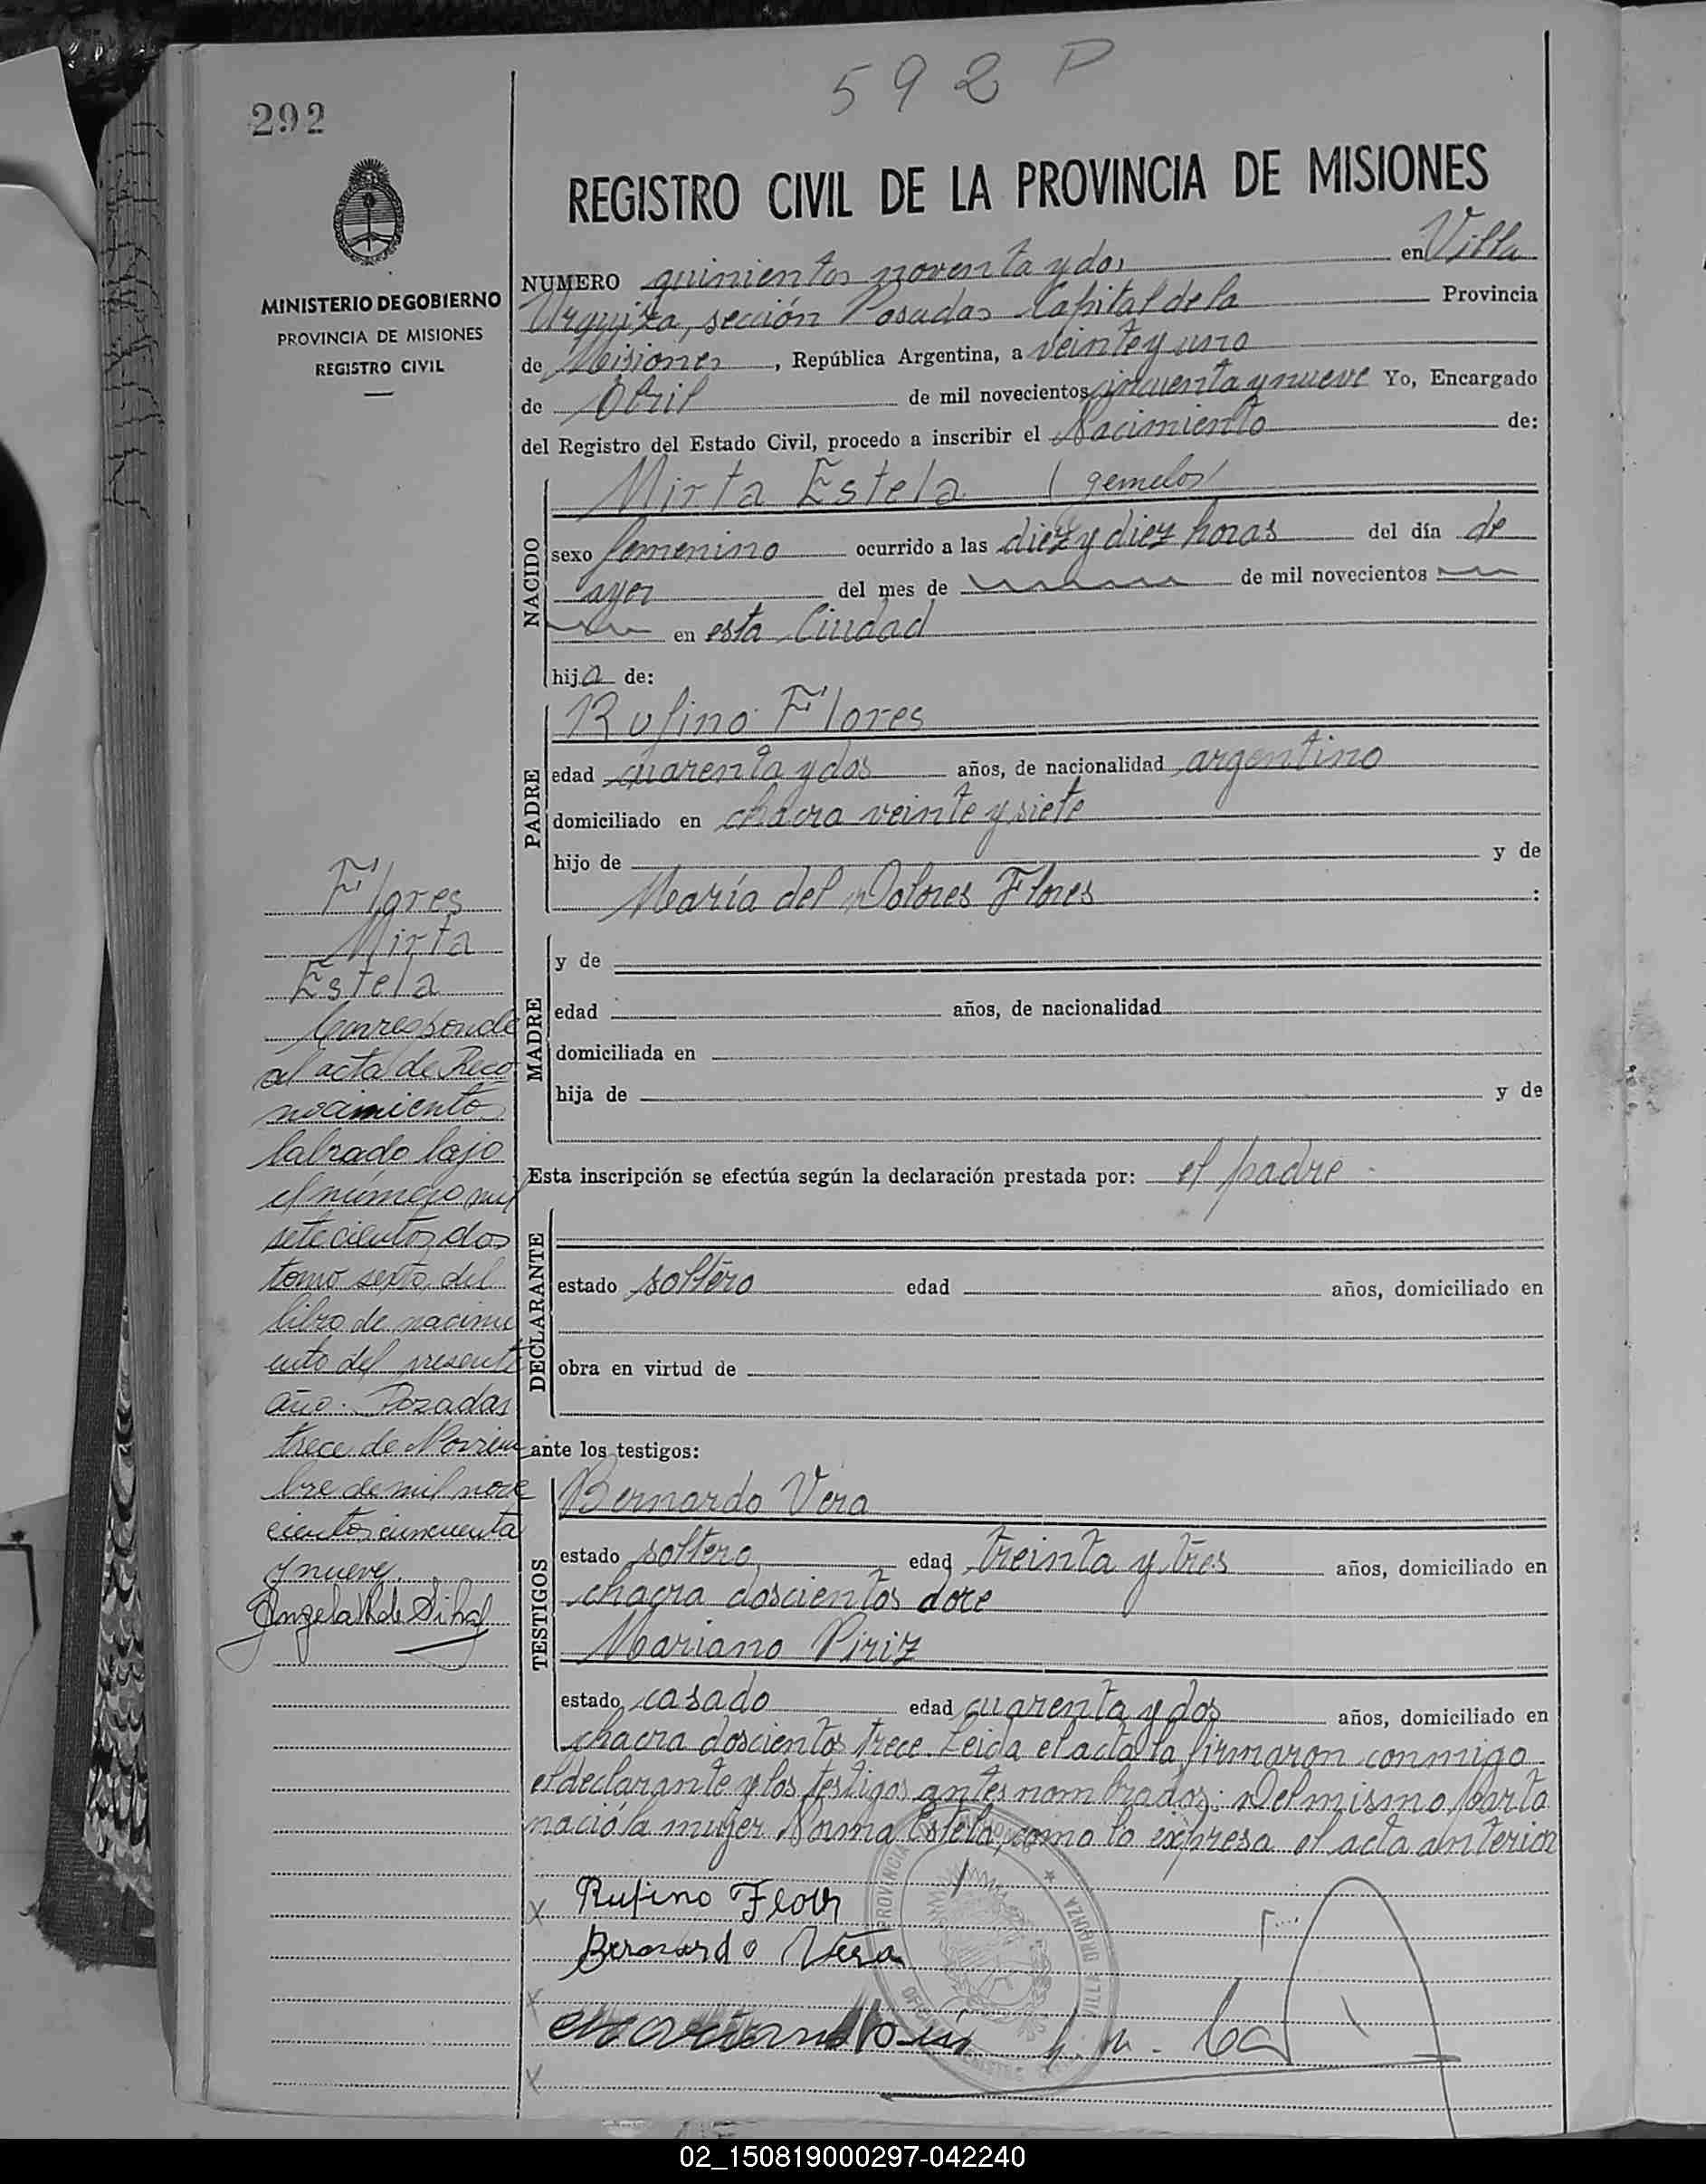 592 P
292
REGISTRO CIVIL DE LA PROVINCIA DE MISIONES
MINISTERIO DE GOBIERNO
PROVINCIA DE MISIONES
REGISTRO CIVIL
NUMERO quinientos noventa y dos en Villa
Urquiza, sección Posadas Capital de la Provincia
de Misiones, República Argentina, a veinte y uno
de Abril de mil novecientos cincuenta y nueve Yo, Encargado
del Registro del Estado Civil, procedo a inscribir el Nacimiento de:
NACIDO
Mirta Estela (gemelos)
sexo femenino ocurrido a las diez y diez horas del día de
ayer del mes de de mil novecientos
en esta Ciudad
hija de:
PADRE
Rufino Flores
edad cuarenta y dos años, de nacionalidad argentino
domiciliado en chacra veinte y siete
hijo de y de
María del Dolores Flores :
MADRE
y de
edad años, de nacionalidad
domiciliada en
hija de y de
Esta inscripción se efectúa según la declaración prestada por: el padre
DECLARANTE
estado soltero edad años, domiciliado en
obra en virtud de
ante los testigos:
TESTIGOS
Bernardo Vera
estado soltero edad treinta y tres años, domiciliado en
chacra doscientos doce
Mariano Piriz
estado casado edad cuarenta y dos años, domiciliado en
chacra doscientos trece. Leida el acta la firmaron conmigo
el declarante y los testigos antes nombrados: Del mismo parto
nació la mujer Norma Estela, como lo expresa el acta anterior
Rufino Flores
Bernardo Vera
Flores
Mirta
Estela
Corresponde
al acta de Reco
nocimiento
labrado bajo
el número mil
setecientos dos
tomo sexto del
libro de nacimi
ento del presente
año. Posadas
trece de Noviem
bre de mil nove
cientos cincuenta
y nueve.
Angela
02_150819000297-042240